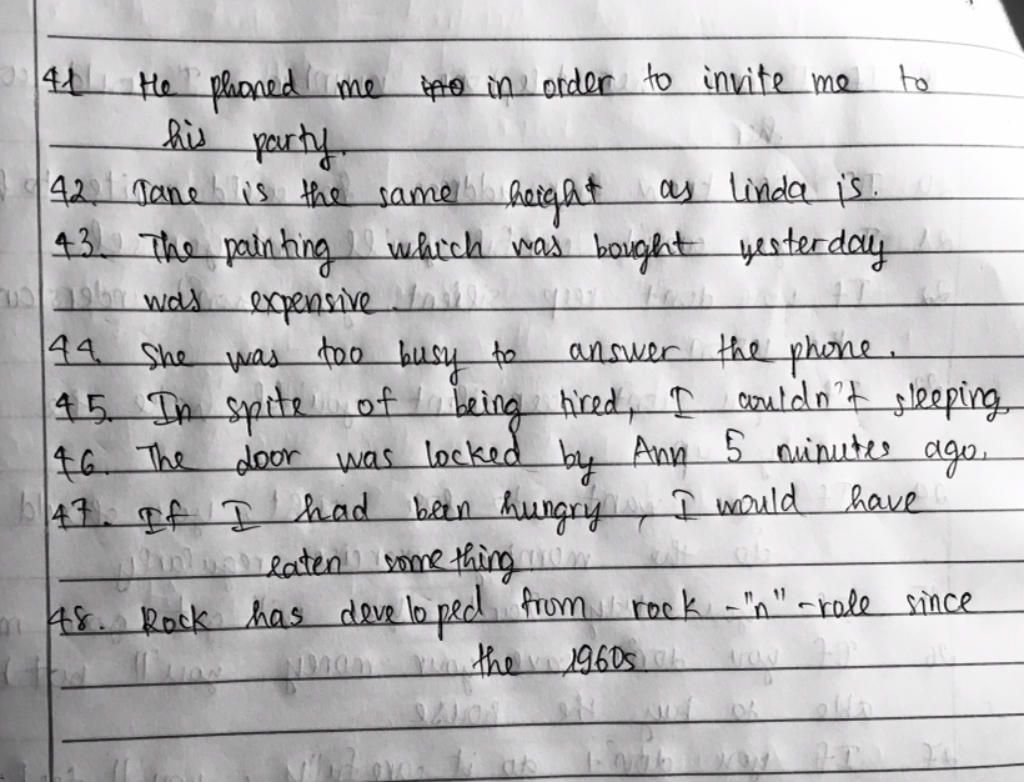 41 He phoned me in order to invite me to
his party.
42. Jane is the same height as Linda is.
43. The painting which was bought yesterday
was expensive.
44. She was too busy to answer the phone.
45. In spite of being tired, I couldn't sleeping.
46. The door was locked by Ann 5 minutes ago.
47. If I had been hungry, I would have
eaten something
48. Rock has developed from rock -"n" -role since
the 1960s